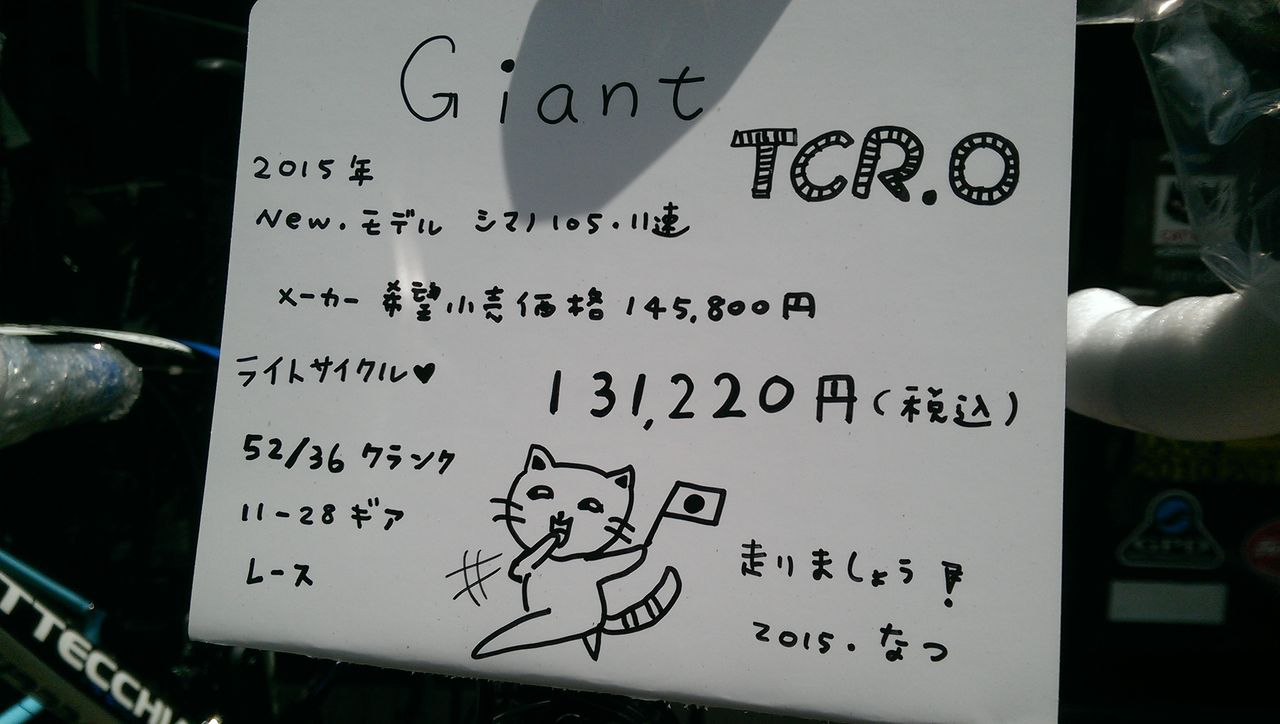 Giant
TCR.0
2015年
New.モデル シマノ105.11速
メーカー 希望小売価格 145,800円
ライトサイクル♥
131,220円(税込)
52/36 クランク
11-28 ギア
レース
走りましょう!
2015.なつ
TTECCHIN